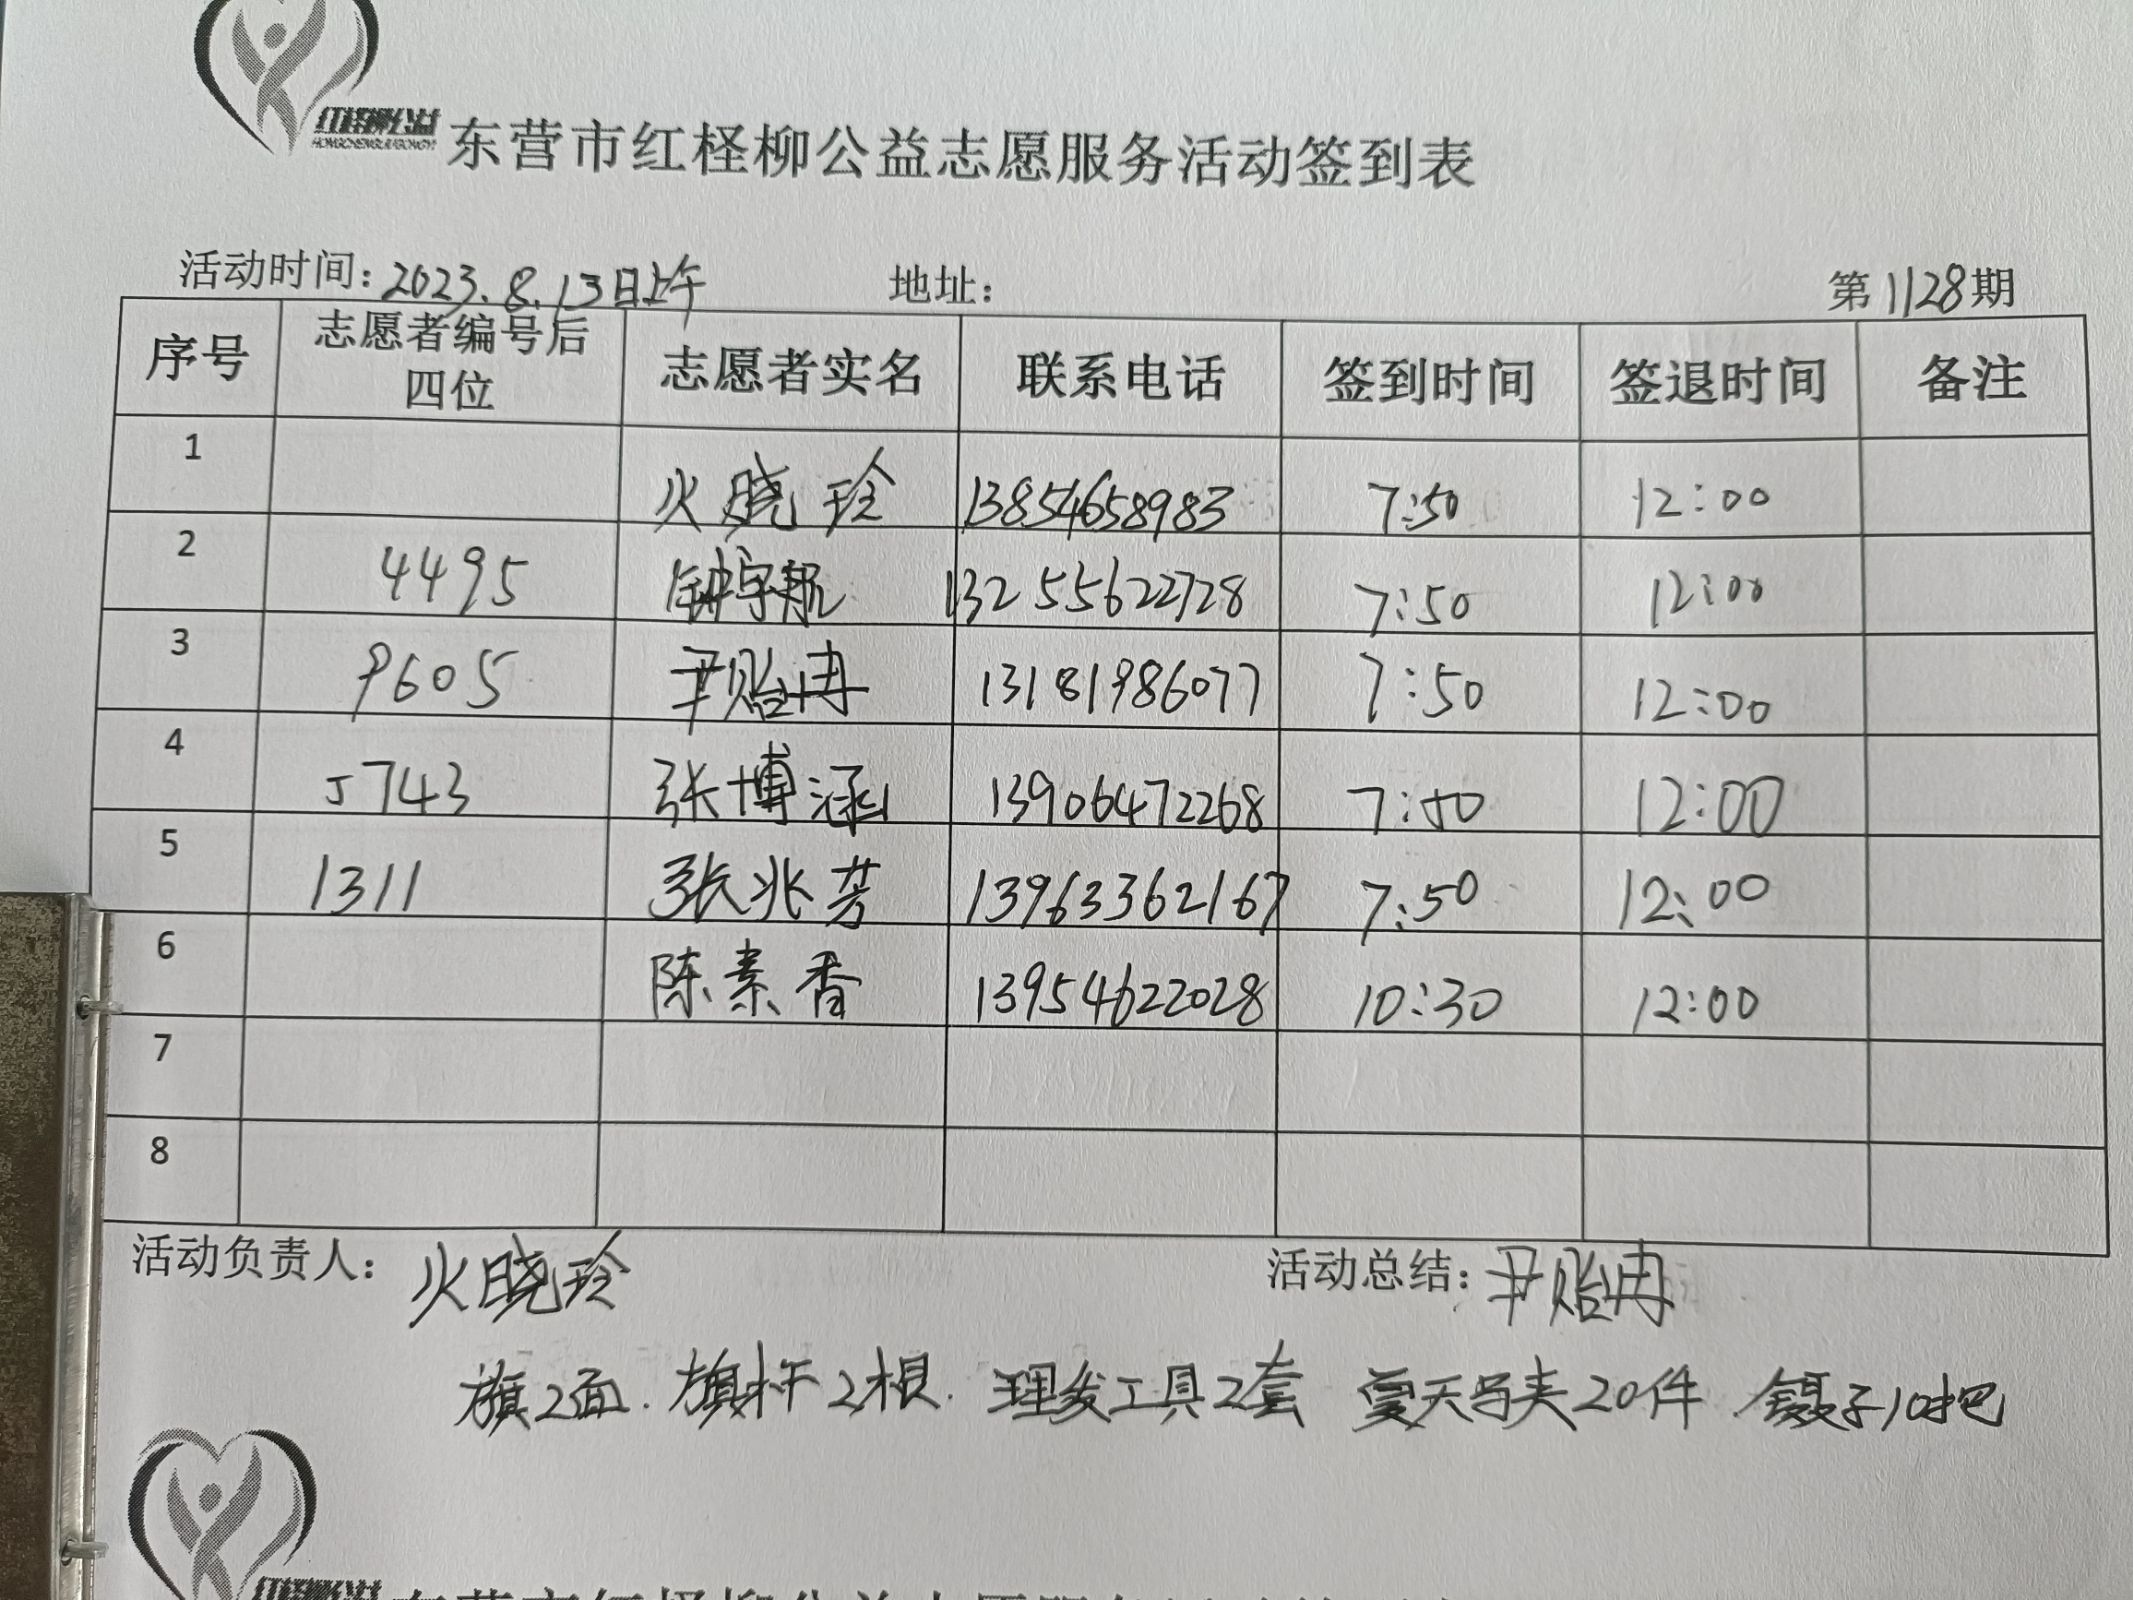 红柽柳公益
HONGCHENGLIUGONGYI
东营市红柽柳公益志愿服务活动签到表
活动时间：2023.8.13日上午 地址： 第1128期
序号 志愿者编号后四位 志愿者实名 联系电话 签到时间 签退时间 备注
1 火晓玲 13854658983 7:50 12:00
2 4495 钟宇航 13255622728 7:50 12:00
3 9605 尹贻冉 13181986077 7:50 12:00
4 5743 张博涵 13906472268 7:50 12:00
5 1311 张兆芳 13963362167 7:50 12:00
6 陈素香 13954622028 10:30 12:00
7
8
活动负责人：火晓玲 活动总结：尹贻冉
旗2面．旗杆2根．理发工具2套 夏天马夹20件 镊子10把
红柽柳公益 东营市红柽柳公益志愿服务活动签到表